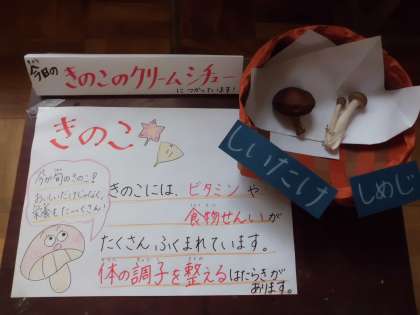 今日の きのこのクリームシチュー
につかっています！
きのこ
今が旬のきのこ！
おいしいだけじゃなく、
栄養もたっぷさん！
きのこには、ビタミンや
食物せんいが
たくさんふくまれています。
体の調子を整えるはたらきが
あります。
しいたけ
しめじ